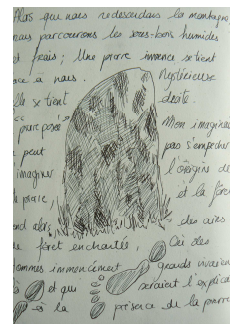 Alors que nous redescendons la montagne
nous parcourons les sous-bois humides
et frais; Une pierre immence se tient
face à nous. Mystérieuse
elle se tient droite.
pierre posée Mon imagina
peut pas s'empêcher
imaginer l'origine de
pierre, et la forê
alors des airs
forêt enchantée, Où des
hommes immencément grands vivaien
à et qui seraient l'explica
à la présence de la pierre